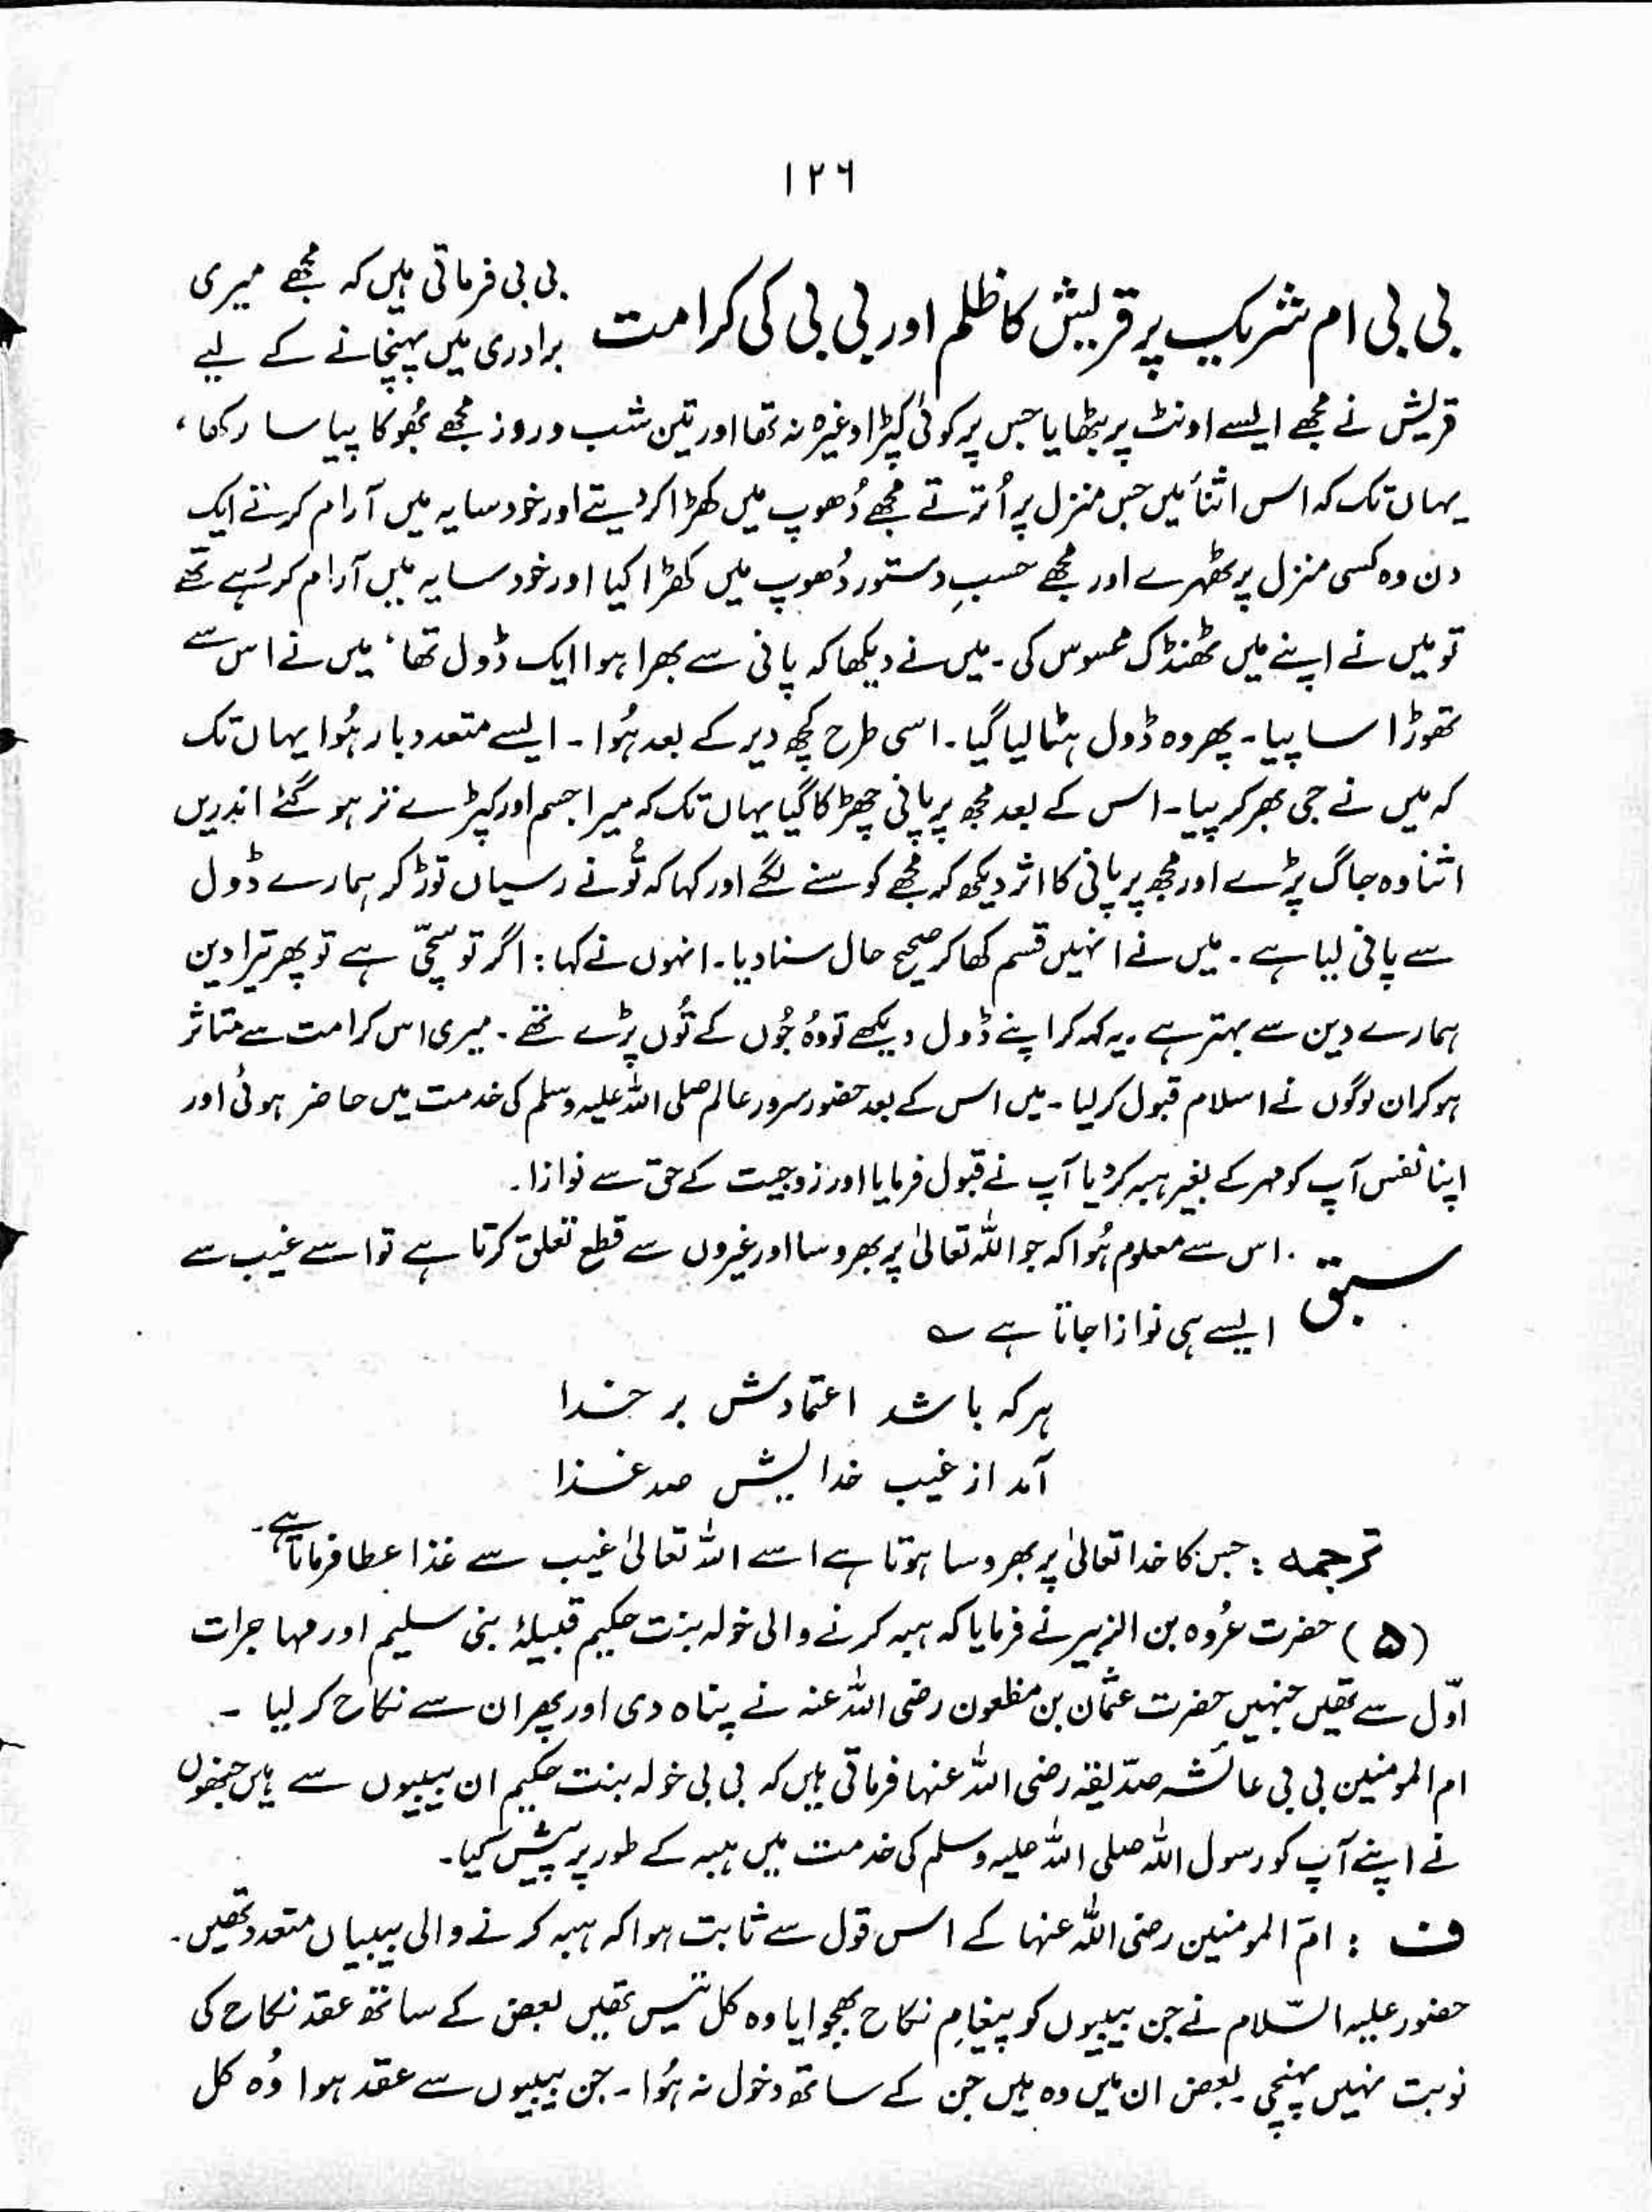 ۱۲۶
بی بی ام شریک پر قریش کا ظلم اور بی بی کی کرامت
بی بی فرماتی ہیں کہ مجھے میری
برادری میں پہنچانے کے لیے
قریش نے مجھے ایسے اونٹ پر بٹھایا جس پر کوئی کپڑا وغیرہ نہ تھا اور تین شب و روز مجھے بُھوکا پیاسا رکھا،
یہاں تک کہ اس اثنأ میں جس منزل پر اُترتے مجھے دُھوپ میں کھڑا کر دیتے اور خود سایہ میں آرام کرتے ایک
دن وہ کسی منزل پر ٹھہرے اور مجھے حسبِ دستور دُھوپ میں کھڑا کیا اور خود سایہ میں آرام کر رہے تھے
تو میں نے اپنے میں ٹھنڈک محسوس کی۔ میں نے دیکھا کہ پانی سے بھرا ہوا ایک ڈول تھا، میں نے اس سے
تھوڑا سا پیا۔ پھر وہ ڈول ہٹا لیا گیا۔ اسی طرح کچھ دیر کے بعد ہُوا۔ ایسے متعدد بار ہُوا یہاں تک
کہ میں نے جی بھر کر پیا۔ اس کے بعد مجھ پر پانی چھڑکا گیا یہاں تک کہ میرا جسم اور کپڑے تر ہو گئے اندریں
اثنا وہ جاگ پڑے اور مجھ پر پانی کا اثر دیکھ کر مجھے کوسنے لگے اور کہا کہ تُو نے رسیاں توڑ کر ہمارے ڈول
سے پانی لیا ہے۔ میں نے انہیں قسم کھا کر صحیح حال سنا دیا۔ انہوں نے کہا: اگر تو سچّی ہے تو پھر تیرا دین
ہمارے دین سے بہتر ہے۔ یہ کہہ کر اپنے ڈول دیکھے تو وُہ جُوں کے تُوں پڑے تھے۔ میری اس کرامت سے متاثر
ہو کر ان لوگوں نے اسلام قبول کر لیا۔ میں اس کے بعد حضور سرور عالم صلی اللہ علیہ وسلم کی خدمت میں حاضر ہوئی اور
اپنا نفس آپ کو مہر کے بغیر ہبہ کر دیا آپ نے قبول فرمایا اور زوجیت کے حق سے نوازا۔
سبق . اس سے معلوم ہُوا کہ جو اللہ تعالیٰ پر بھروسا اور غیروں سے قطع تعلق کرتا ہے تو اسے غیب سے
ایسے ہی نوازا جاتا ہے ؎
ہر کہ باشد اعتمادش بر خدا
آمد از غیب خدایش صد غذا
ترجمہ : جس کا خدا تعالیٰ پر بھروسا ہوتا ہے اسے اللہ تعالیٰ غیب سے غذا عطا فرماتا ہے۔
(۵) حضرت عُروہ بن الزبیر نے فرمایا کہ ہبہ کرنے والی خولہ بنت حکیم قبیلۂ بنی سلیم اور مہاجرات
اوّل سے تھیں جنہیں حضرت عثمان بن مظعون رضی اللہ عنہ نے پناہ دی اور پھر ان سے نکاح کر لیا ۔
ام المومنین بی بی عائشہ صدّیقہ رضی اللہ عنہا فرماتی ہیں کہ بی بی خولہ بنت حکیم ان بیبیوں سے ہیں جنھوں
نے اپنے آپ کو رسول اللہ صلی اللہ علیہ وسلم کی خدمت میں ہبہ کے طور پر پیش کیا۔
ف : امّ المومنین رضی اللہ عنہا کے اس قول سے ثابت ہوا کہ ہبہ کرنے والی بیبیاں متعدد تھیں۔
حضور علیہ السّلام نے جن بیبیوں کو پیغامِ نکاح بھجوایا وہ کل تیس تھیں بعض کے ساتھ عقد نکاح کی
نوبت نہیں پہنچی۔ بعض ان میں وہ ہیں جن کے ساتھ دخول نہ ہُوا۔ جن بیبیوں سے عقد ہوا وُہ کل